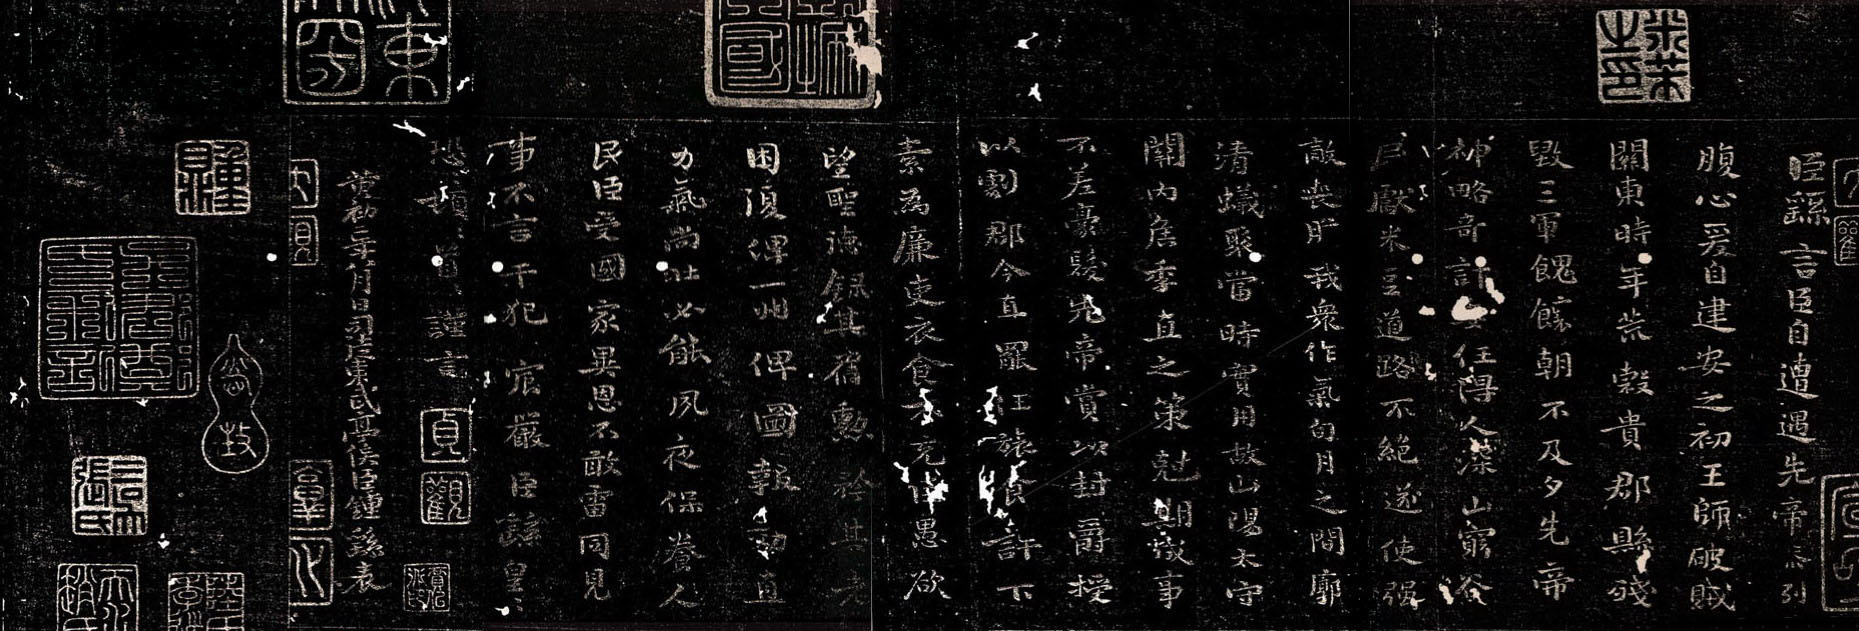 臣繇言臣自遭遇先帝忝列
腹心爰自建安之初王師破賊
關東時年荒穀貴郡縣殘
毀三軍餽饟朝不及夕先帝
神略奇計委任得人深山窮谷
民獻米豆道路不絕遂使強
敵喪肝我衆作氣旬月之間廓
清蟻聚當時實用故山陽太守
關內侯季直之策剋期成事
不差豪髮先帝賞以封爵授
以劇郡今直罷任旅食許下
素為廉吏衣食不充臣愚欲
望聖德錄其舊勳矜其老
困復俾一州俾圖報効直
力氣尚壯必能夙夜保養人
民臣受國家異恩不敢雷同見
事不言干犯宸嚴臣繇皇〻
恐〻頓〻首〻謹言
黃初二年八月日司徒東武亭侯臣鍾繇表
米芾之印